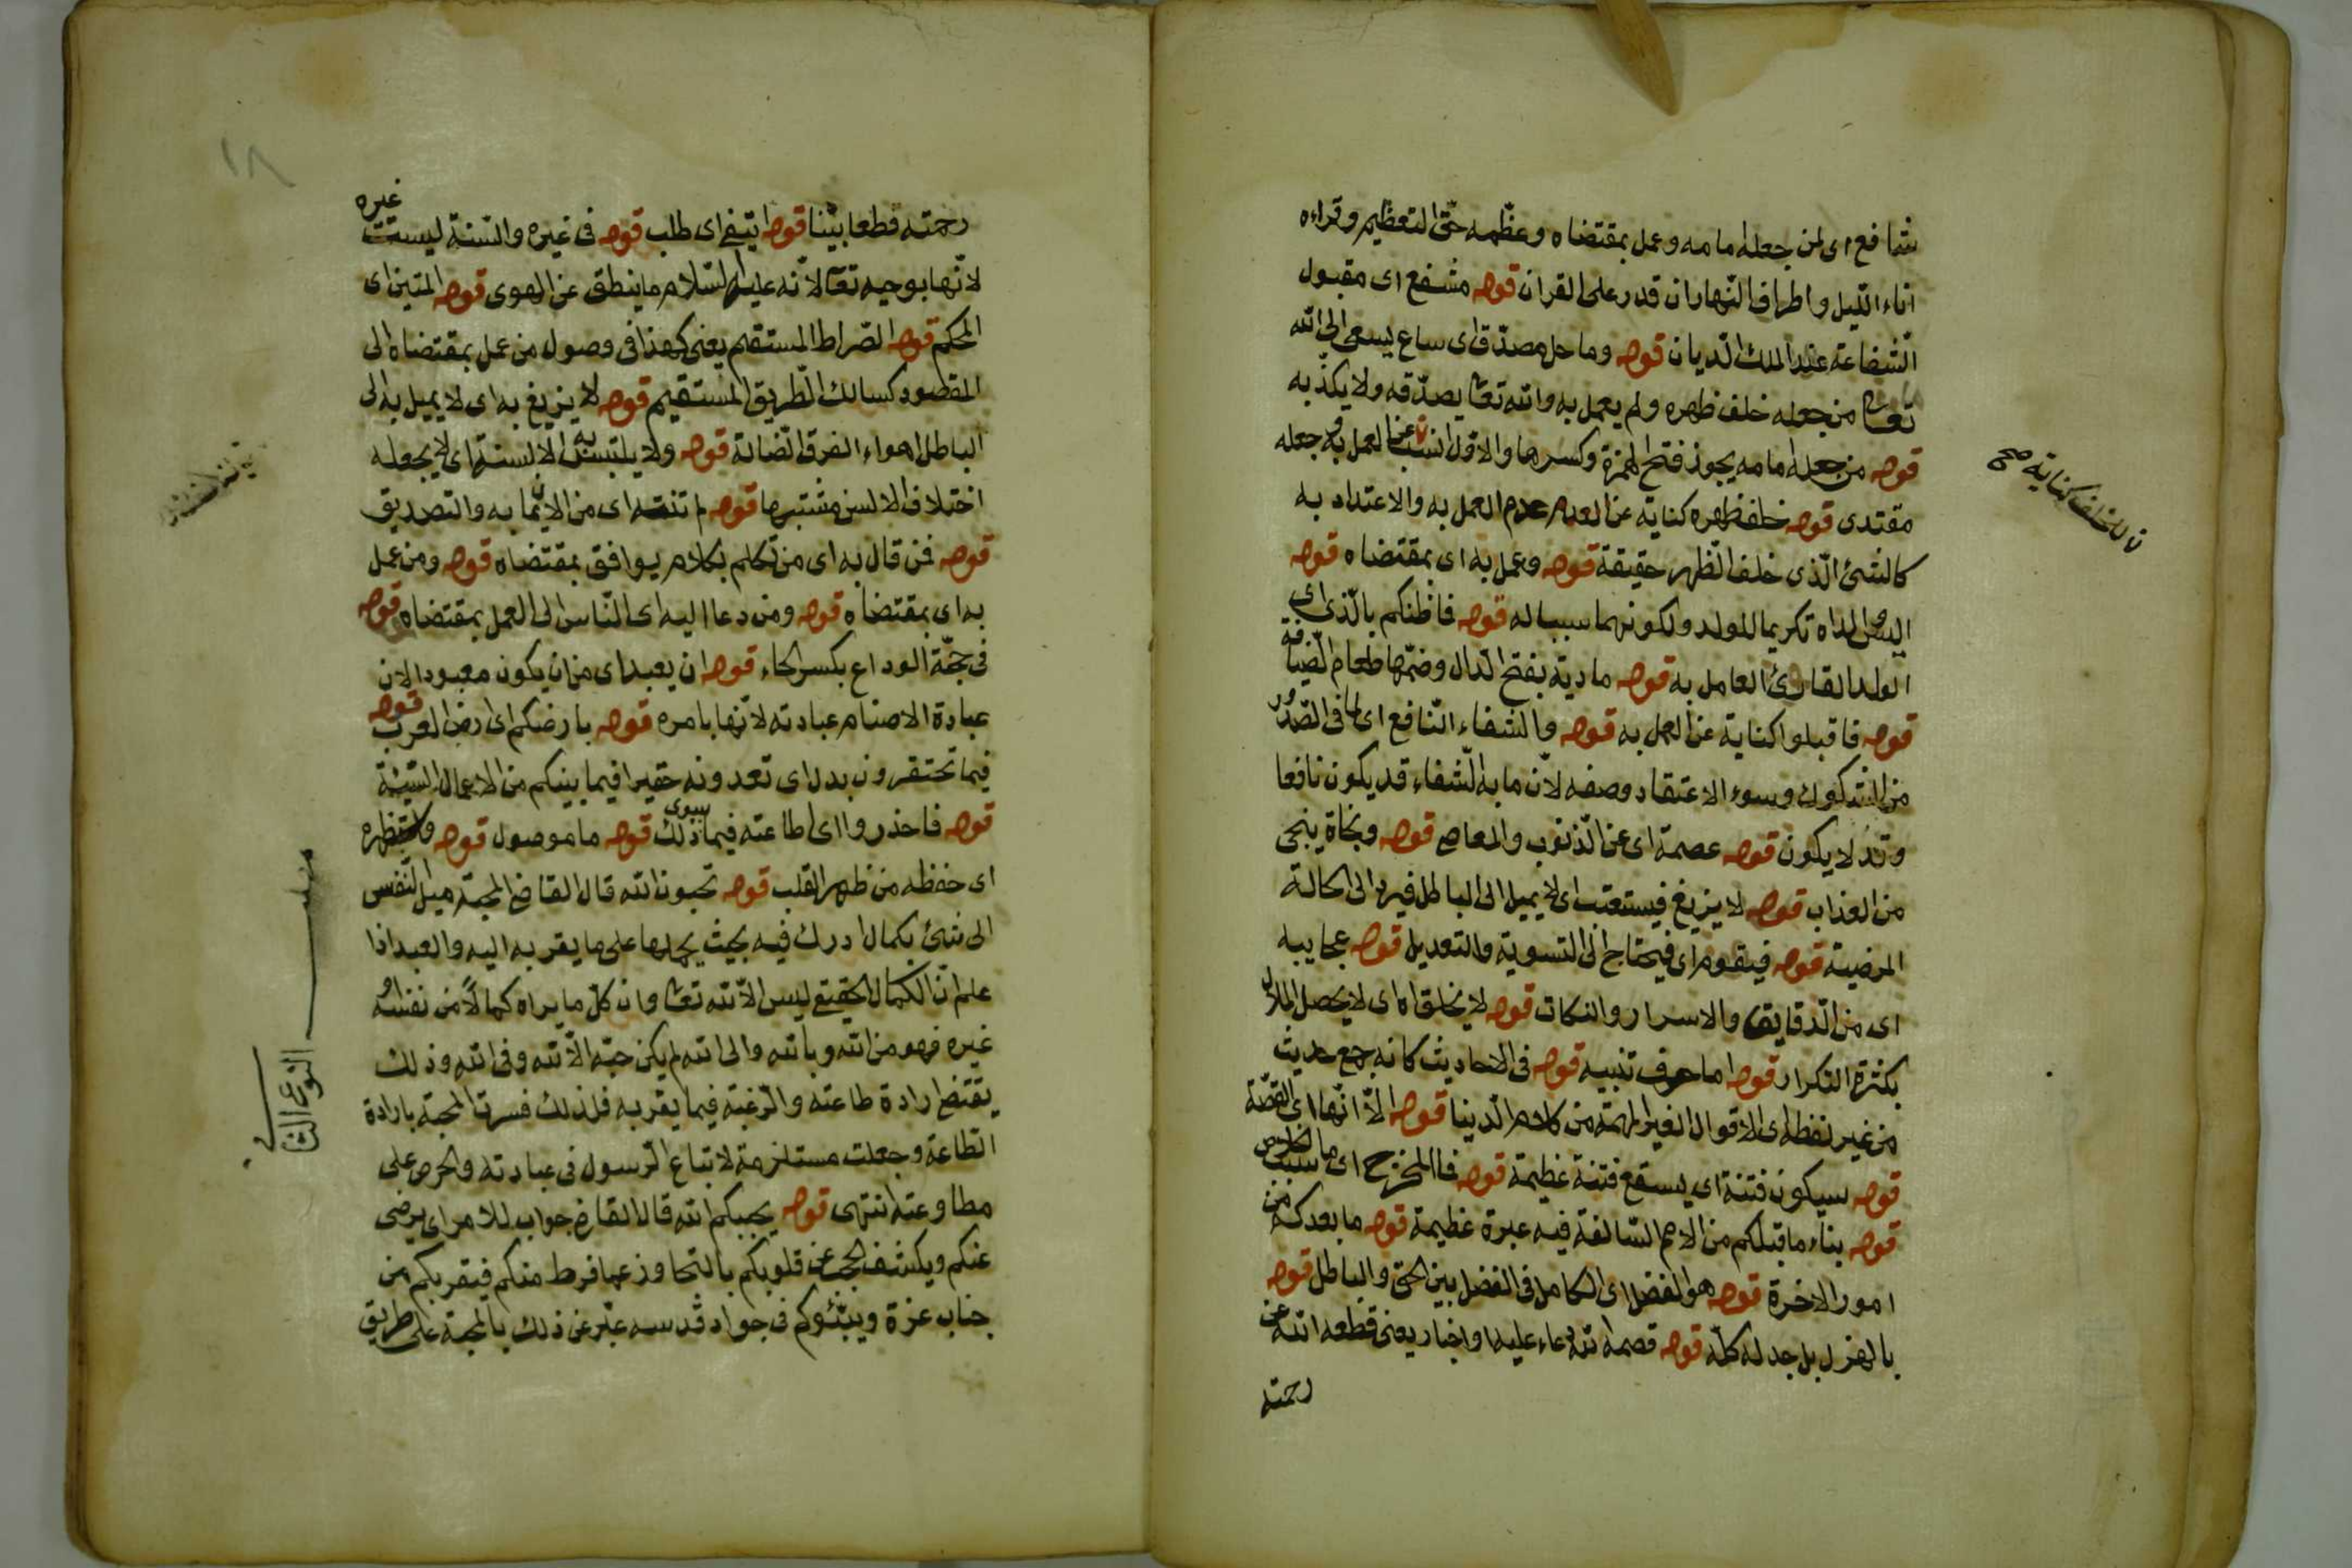 شافع اى لمن جعله امامه وعمل بمقتضاه وعظّمه حقّ التعظيم وقراءه
اناء اللّيل واطراف النّهار ان قدر على القران قوله مشفع اى مقبول
الشّفاعة عند الملك الدّيان قوله وماحل مصدّق اى ساع يسعى الى الله
تعا من جعله خلف ظهره ولم يعمل به والله تعا يصدّقه ولا يكذّبه
قوله من جعله امامه يجوز فتح الهمزة وكسرها والاوّل انسب عن العمل به جعله
مقتدى قوله خلف ظهره كناية عن عدم العمل به والاعتداد به
كالشئ الّذى خلف الظّهر حقيقة قوله وعمل به اى بمقتضاه قوله
البس والداه تكريما للولد ولكونهما سببا له قوله فما ظنكم بالّذى اى
الولد القارئ العامل به قوله مادبة بفتح الدّال وضمّها طعام الضّيافة
قوله فاقبلوا كناية عن العمل به قوله والشفاء النّافع اى لما فى الصّدور
من الشكوك وسوء الاعتقاد وصفه لانّ ما به الشّفاء قد يكون نافعا
وقد لا يكون قوله عصمة اى عن الذّنوب والمعاصى قوله ونجاة ينجى
من العذاب قوله لا يزيغ فيستعتب اى لا يميل الى الباطل فيردّ الى الحالة
المرضية قوله فيقوم اى فيحتاج الى التسوية والتعديل قوله عجايبه
اى من الدّقايق والاسرار والنكات قوله لا يخلق اه اى لا يحصل الملال
بكثرة التكرار قوله اما حرف تنبيه قوله فى الاحاديث كانه جمع حديث
من غير لفظه اى الاقوال الغير المهمّة من كلام الدّينا قوله الاّ انّها اى القصّة
قوله سيكون فتنة اى يستقع فتنة عظيمة قوله فما المخرج اى ما سبب الخلاص
قوله بناء ما قبلكم من الامم السّالفة فيه عبرة عظيمة قوله ما بعدكم من
امور الاخرة قوله هو الفضل اى الكامل فى الفضل بين الحق والباطل قوله
بالهزل بل جد له كلّه قوله قصمه الله دعاء عليه او اخبار يعنى قطعه الله عن
رحمته
للخلف كناية صح
١٨
رحمته قطعا بيّنا قوله ابتغى اى طلب قوله فى غيره والسّنة ليست غيره
لانّها بوحيه تعا لانّه عليه السّلام ما ينطق عن الهوى قوله المتين اى
المحكم قوله الصّراط المستقيم يعنى كهذا فى وصول من عمل بمقتضاه الى
المقصود كسالك الطّريق المستقيم قوله لا يزيغ به اى لا يميل به الى
الباطل اهواء الفرق الضّالة قوله ولا يلتبس به الالسنة اى لا يجعله
اختلاف الالسن مشتبها قوله لم تنته اى من الايمان به والتصديق
قوله فمن قال به اى من تكلم بكلام يوافق بمقتضاه قوله ومن عمل
به اى بمقتضاه قوله ومن دعا اليه اى النّاس الى العمل بمقتضاه قوله
فى حجّة الوداع بكسر الحاء قوله ان يعبد اى من ان يكون معبودا لان
عبادة الاصنام عبادته لانّها بامره قوله بارضكم اى ارض العرب قوله
فيما تحتقرون بدل اى تعدونه حقيرا فيما بينكم من الاعمال السّيئة
قوله فاحذروا اى اطاعته فيما سوى ذلك قوله ما موصول قوله واستظهره
اى حفظه من ظهر القلب قوله تحبون الله قال القاضى المحبة ميل النّفس
الى شئ بكمال ادرك فيه بحيث يحملها على ما يقربه اليه والعبد اذا
علم انّ الكمال الحقيقى ليس الاّ لله تعا وان كلّ ما يراه كمالاً من نفسه او
غيره فهو من الله وبالله والى الله لم يكن حبّه الاّ لله وفى الله وذلك
يقتضى ارادة طاعته والرّغبة فيما يقربه فلذلك فسرت المحبة بارادة
الطّاعة وجعلت مستلزمة لاتباع الرّسول فى عبادته والحرص على
مطاوعته انتهى قوله يحببكم الله قال القاضى جواب للامر اى يرضى
عنكم ويكشف الحجب عن قلوبكم بالتجاوز عما فرط منكم فيقربكم من
جناب عزة ويبّئوكم فى جوار قدسه عبّر عن ذلك بالمحبة على طريق
النوع الثا